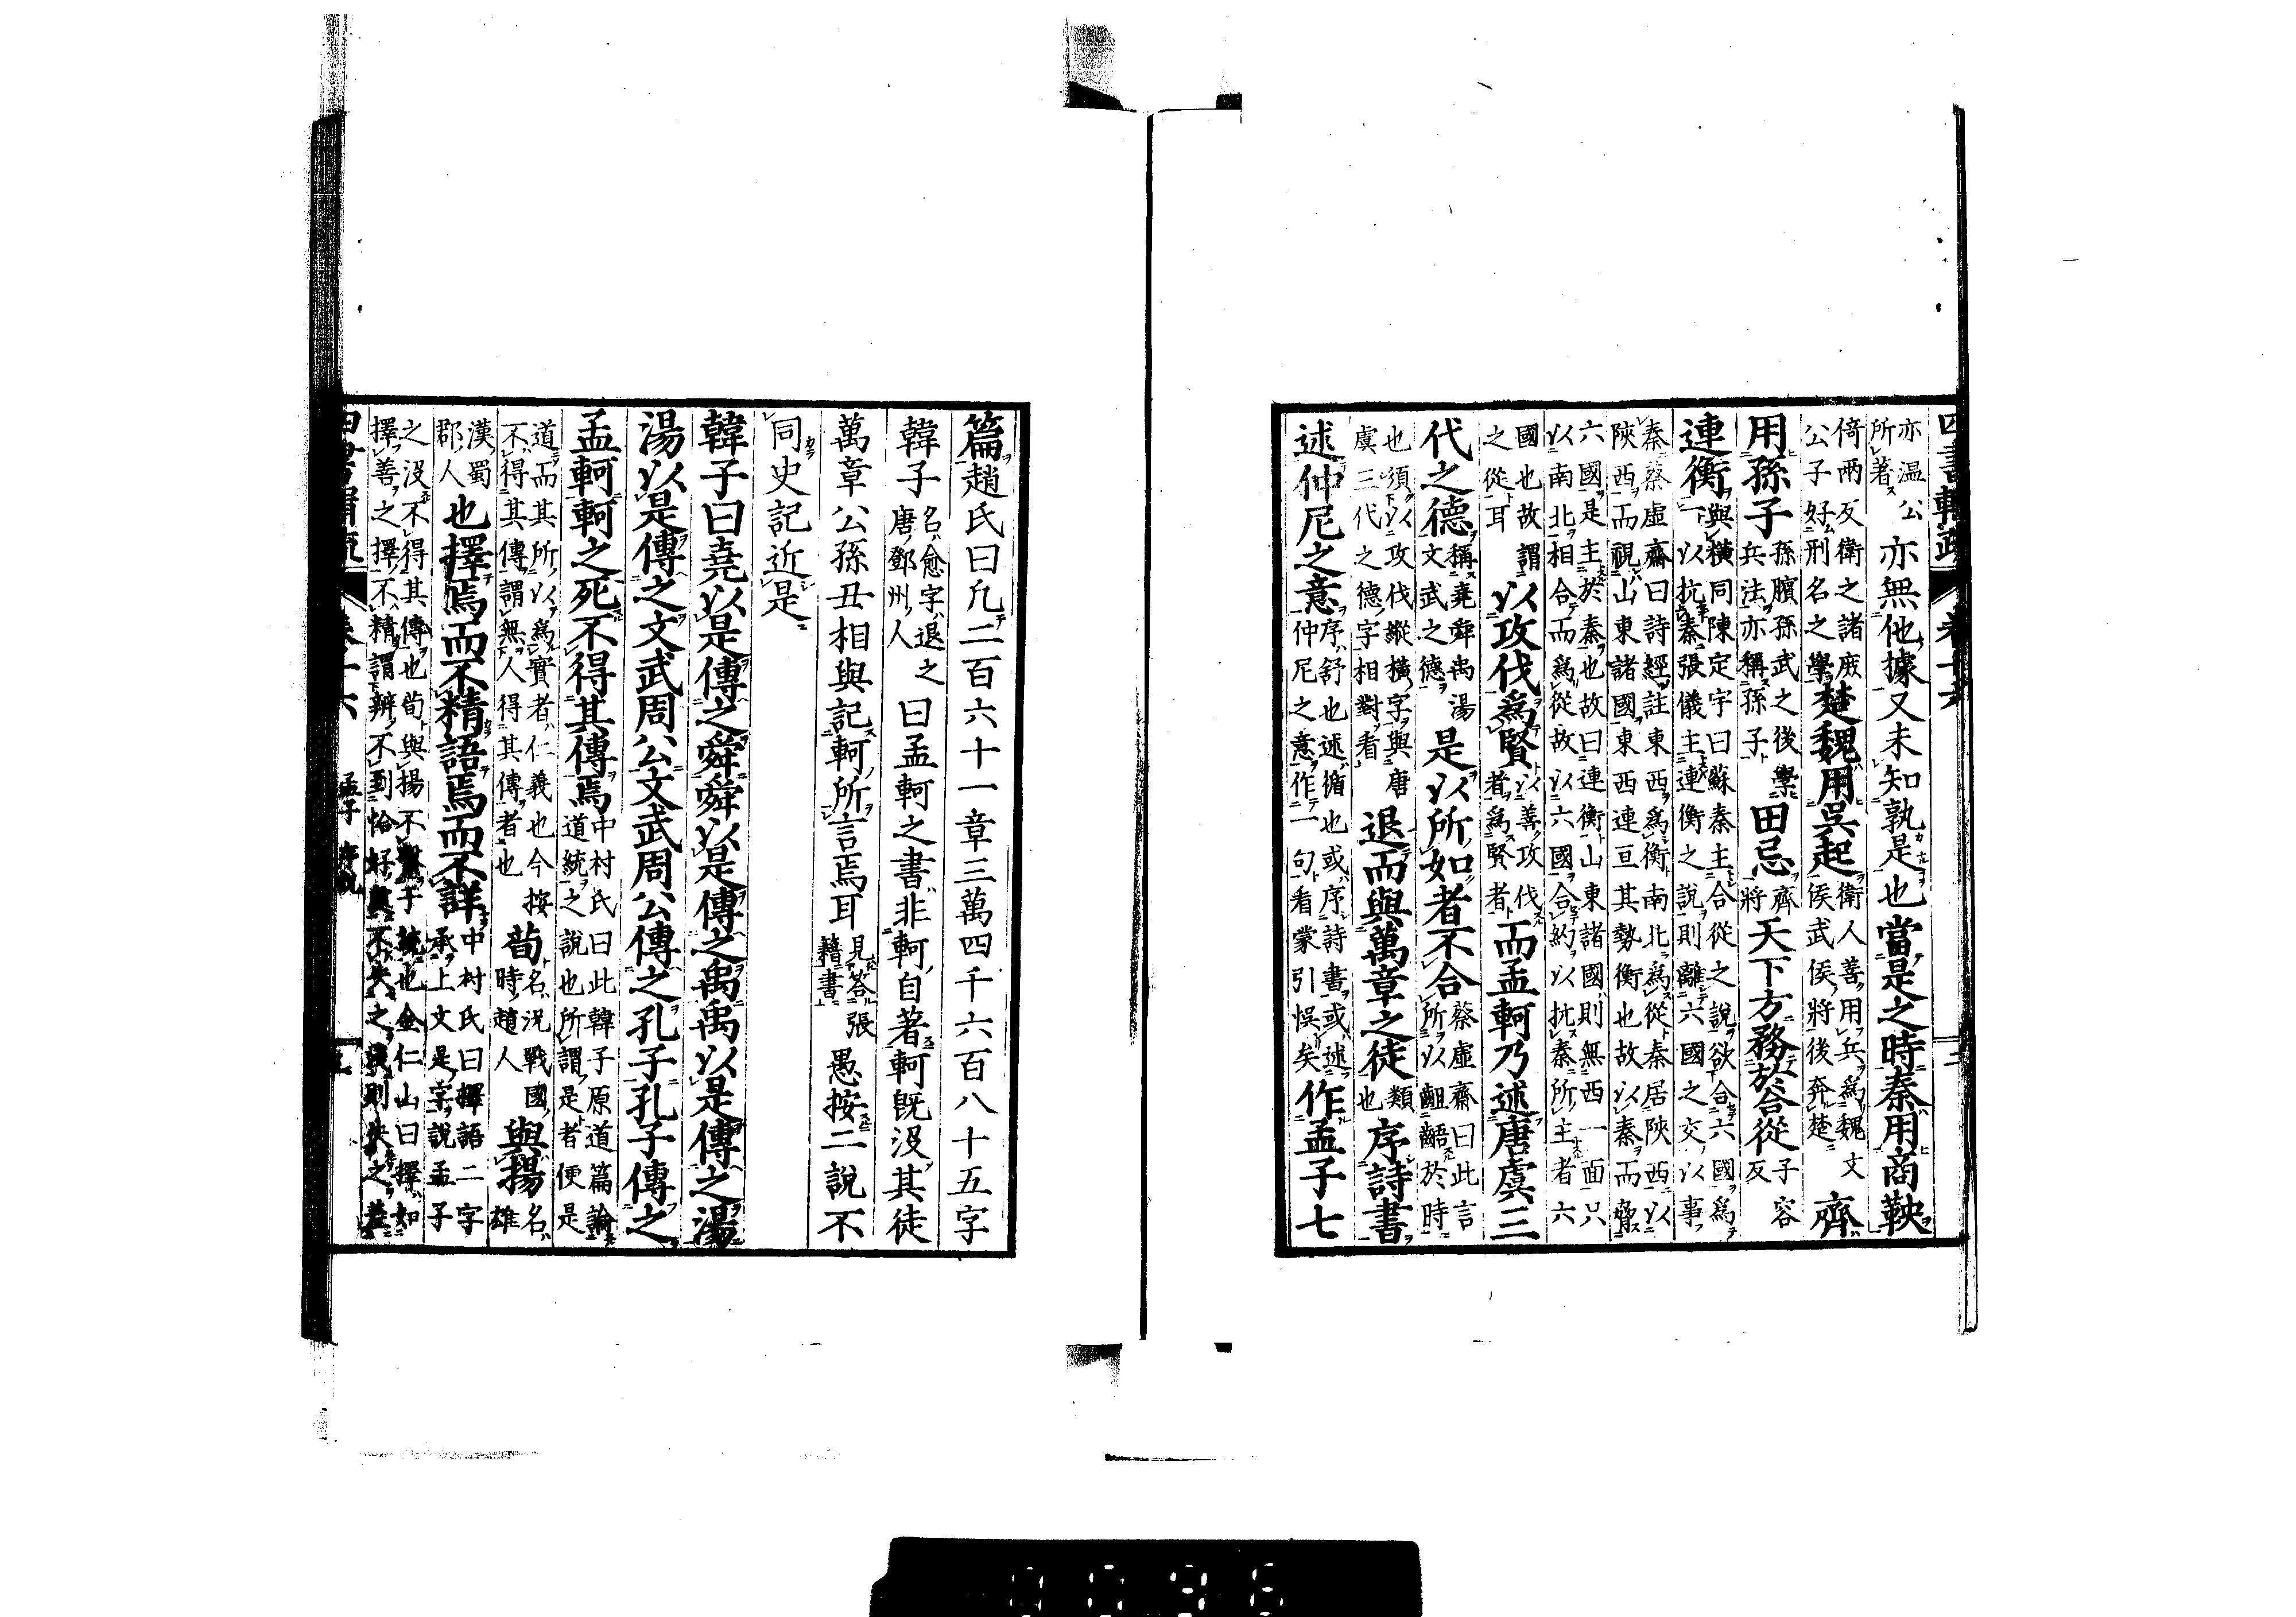 亦温公所著亦無他據又未知孰是也當是之時秦用商鞅
倚兩反衛之諸庶公子好刑名之學楚魏用呉起衛人善用兵爲魏文侯武侯將後奔楚齊
用孫子孫臏孫武之後兵法亦稱孫子田忌齊將天下方務於合從子容反
連衡與横同陳定宇曰蘇秦主合從之説欲合六國爲一以抗秦張儀主連衡之説則離六國之交以事
秦蔡虛齋曰詩經註東西爲衡南北爲從秦居陜西以陜西而視山東諸國東西連亘其勢衡也故以秦而
六國是主於秦也故曰連衡山東諸國則無西一面只以南北相合而爲從故以六國合約以抗秦所主者六
國也故謂之從耳以攻伐爲賢以善攻伐者爲賢者而孟軻乃述唐虞三
代之德稱堯舜禹湯文武之德是以所如者不合蔡虛齋曰此言所以齟齬於時
也須以攻伐縱横字與唐虞三代之德字相對看退而與萬章之徒類也序詩書
述仲尼之意序舒也述循也或序詩書或述仲尼之意作一句看蒙引悮矣作孟子七
篇趙氏曰凡二百六十一章三萬四千六百八十五字
韓子名愈字退之唐鄧州人曰孟軻之書非軻自著軻既沒其徒
萬章公孫丑相與記軻所言焉耳見答張籍書愚按二説不
同史記近是
韓子曰堯以是傳之舜舜以是傳之禹禹以是傳之湯
湯以是傳之文武周公文武周公傳之孔子孔子傳之
孟軻軻之死不得其傳焉中村氏曰此韓子原道篇論道統之説也所謂是者便是
道而其所以爲實者仁義也今按不得其傳謂無人得其傳者也荀名况戰國時趙人與揚名雄
漢蜀郡人也擇焉而不精語焉而不詳中村氏曰擇語二字承上文是字説孟子
之沒不得其傳也荀與揚不子也金仁山曰擇如擇善之擇不精謂辨不到恰好
四書 卷十六 孟子 序説